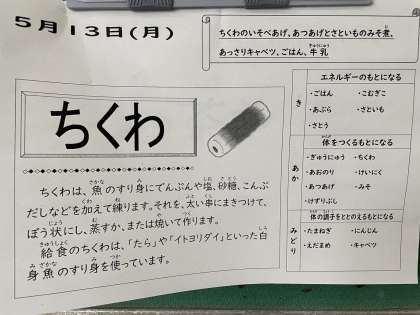 5月13日(月)
ちくわのいそべあげ、あつあげとさといものみそ煮、
あっさりキャベツ、ごはん、牛乳
ちくわ
ちくわは、魚のすり身にでんぷんや塩、砂糖、こんぶ
だしなどを加えて練ります。それを、太い串にまきつけて、
ぼう状にし、蒸すか、または焼いて作ります。
給食のちくわは、「たら」や「イトヨリダイ」といった白
身魚のすり身を使っています。
き
エネルギーのもとになる
・ごはん ・こむぎこ
・あぶら ・さといも
・さとう
あか
体をつくるもとになる
・ぎゅうにゅう ・ちくわ
・あおのり ・けいにく
・あつあげ ・みそ
・けずりぶし
みどり
体の調子をととのえるもとになる
・たまねぎ ・にんじん
・えだまめ ・キャベツ